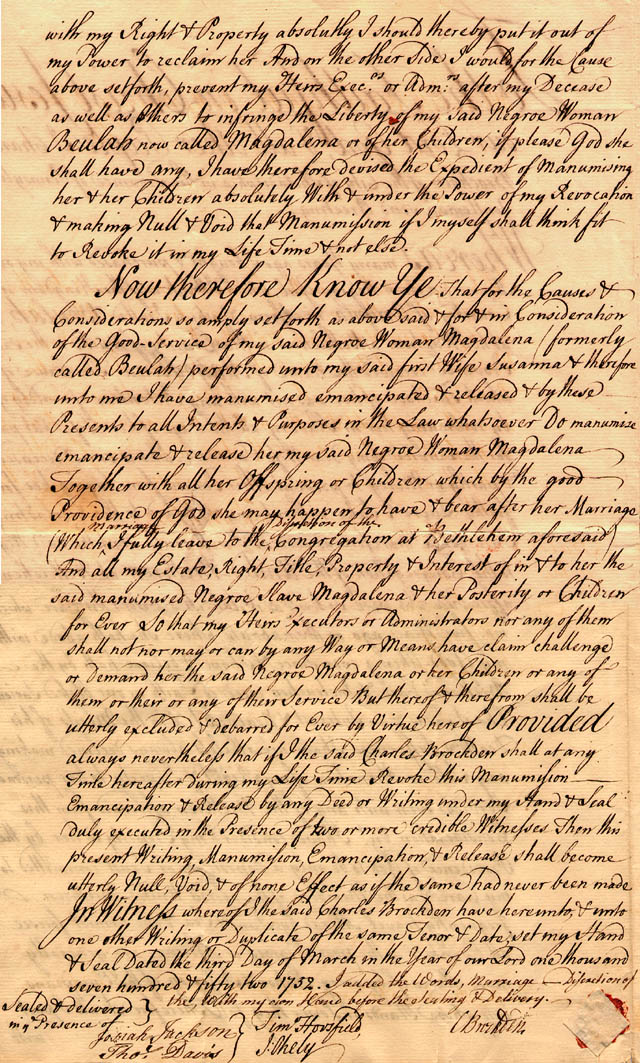 with my Right & Property absolutly I should thereby put it out of
my Power to reclaim her And on the other Side I would for the Cause
above setforth, prevent my Heirs Exec.rs or Adm:rs after my Decease
as well as Others to infringe the Liberty of my said Negroe Woman
Beulah now called Magdalena or of her Children, if please God she
shall have any, I have therefore devised the Expedient of Manumising
her & her Children absolutely With & under the Power of my Revocation
& making Null & Void that Manumission if I myself shall think fit
to Revoke it in my Life Time & not else.
Now therefore Know Ye That for the Causes &
Considerations so amply setforth as above said & for & in Consideration
of the Good-Service of my said Negroe Woman Magdalena (formerly
called Beulah) performed unto my said first Wife Susanna & therefore
unto me I have manumised emancipated & released & by these
Presents to all Intents & Purposes in the Law whatsoever Do manumise
emancipate & release her my said Negroe Woman Magdalena
Together with all her Offspring or Children which by the good
Providence of God she may happen to have & bear after her Marriage
Marriage Discretion of the
(Which I fully leave to the Congregation at Bethlehem aforesaid)
And all my Estate, Right, Title, Property & Interest of in & to her the
said manumised Negroe Slave Magdalena & her Posterity or Children
for Ever So that my Heirs Executors or Administrators nor any of them
shall not nor may or can by any Way or Means have claim challenge
or demand her the said Negroe Magdalena or her Children or any of
them or their or any of their Service But thereof & therefrom shall be
utterly excluded & debarred for Ever by Virtue hereof Provided
always nevertheless that if I the said Charles Brockden shall at any
Time hereafter during my Life Time Revoke this Manumision
Emancipation & Release by any Deed or Writing under my Hand & Seal
duly executed in the Presence of two or more credible Witnesses Then this
present Writing, Manumision, Emancipation, & Release shall become
utterly Null, Void, & of none Effect as if the same had never been made
In Witness whereof I the said Charles Brockden have hereunto, & unto
one other Writing or Duplicate of the same Tenor & Date, set my Hand
& Seal Dated the third Day of March in the Year of our Lord one thousand
seven hundred & fifty two 1752. I added the Words, Marriage — Discretion of
the, with my own Hand before the Sealing & Delivery.
Sealed & delivered
in ye Presence of
Josiah Jackson
Tho.s Davis
Tim Horsfield
J: Okely
C Brockden